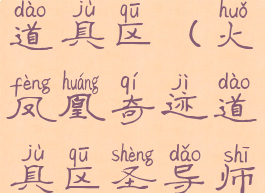 dào jù qū huǒ
道具区（火
fèng huáng qí jì dào
凤凰奇迹道
jù qū shèng dǎo shī
具区圣导师